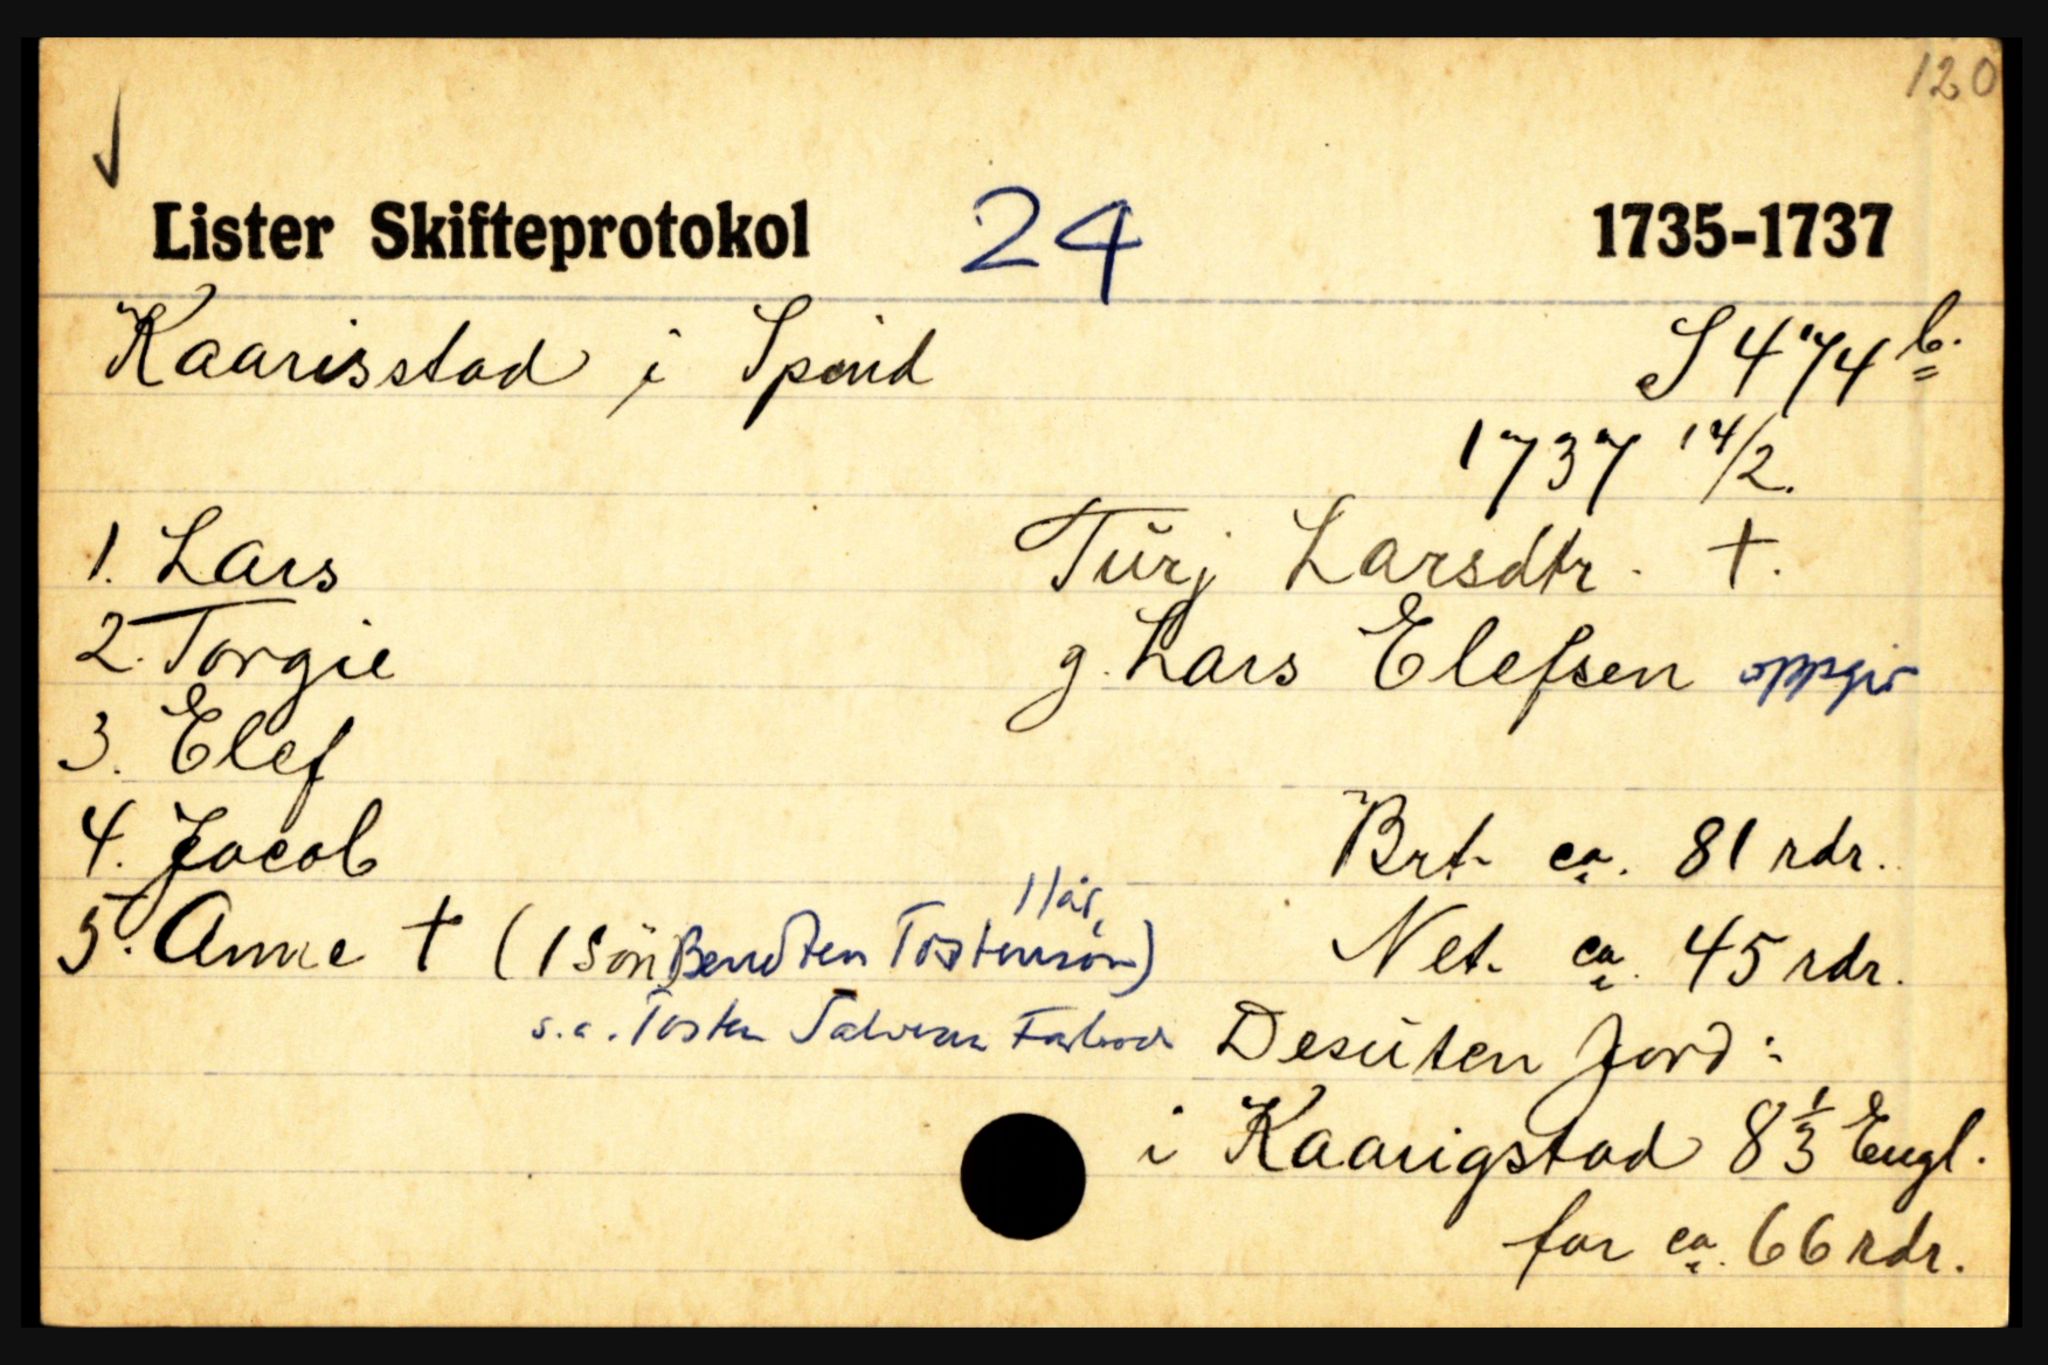 120
Lister Skifteprotokol 24 1735-1737
Kaarisstad i Spind S 474 b.
1737 14/2.
1. Lars Turj Larsdtr. †.
2. Torgie g. Lars Elefsen oppgir
3. Elef
4. Jacob Brt. ca. 81 rdr.
11 år,
5. Anne † (1 sön Bendten Tostensøn) Net. ca. 45 rdr.
s.a. Tosten Desuten jord:
i Kaarigstad 8 1/3 Engl.
for ca. 66 rdr.